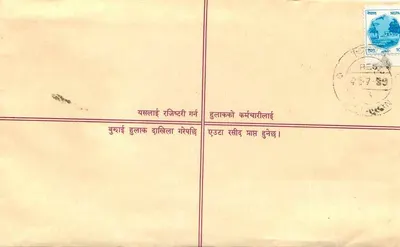 नेपाल NEPAL
यसलाई रजिष्टरी गर्न हुलाकको कर्मचारीलाई
बुझाई हुलाक दाखिला गरेपछि एउटा रसीद प्राप्त हुनेछ।